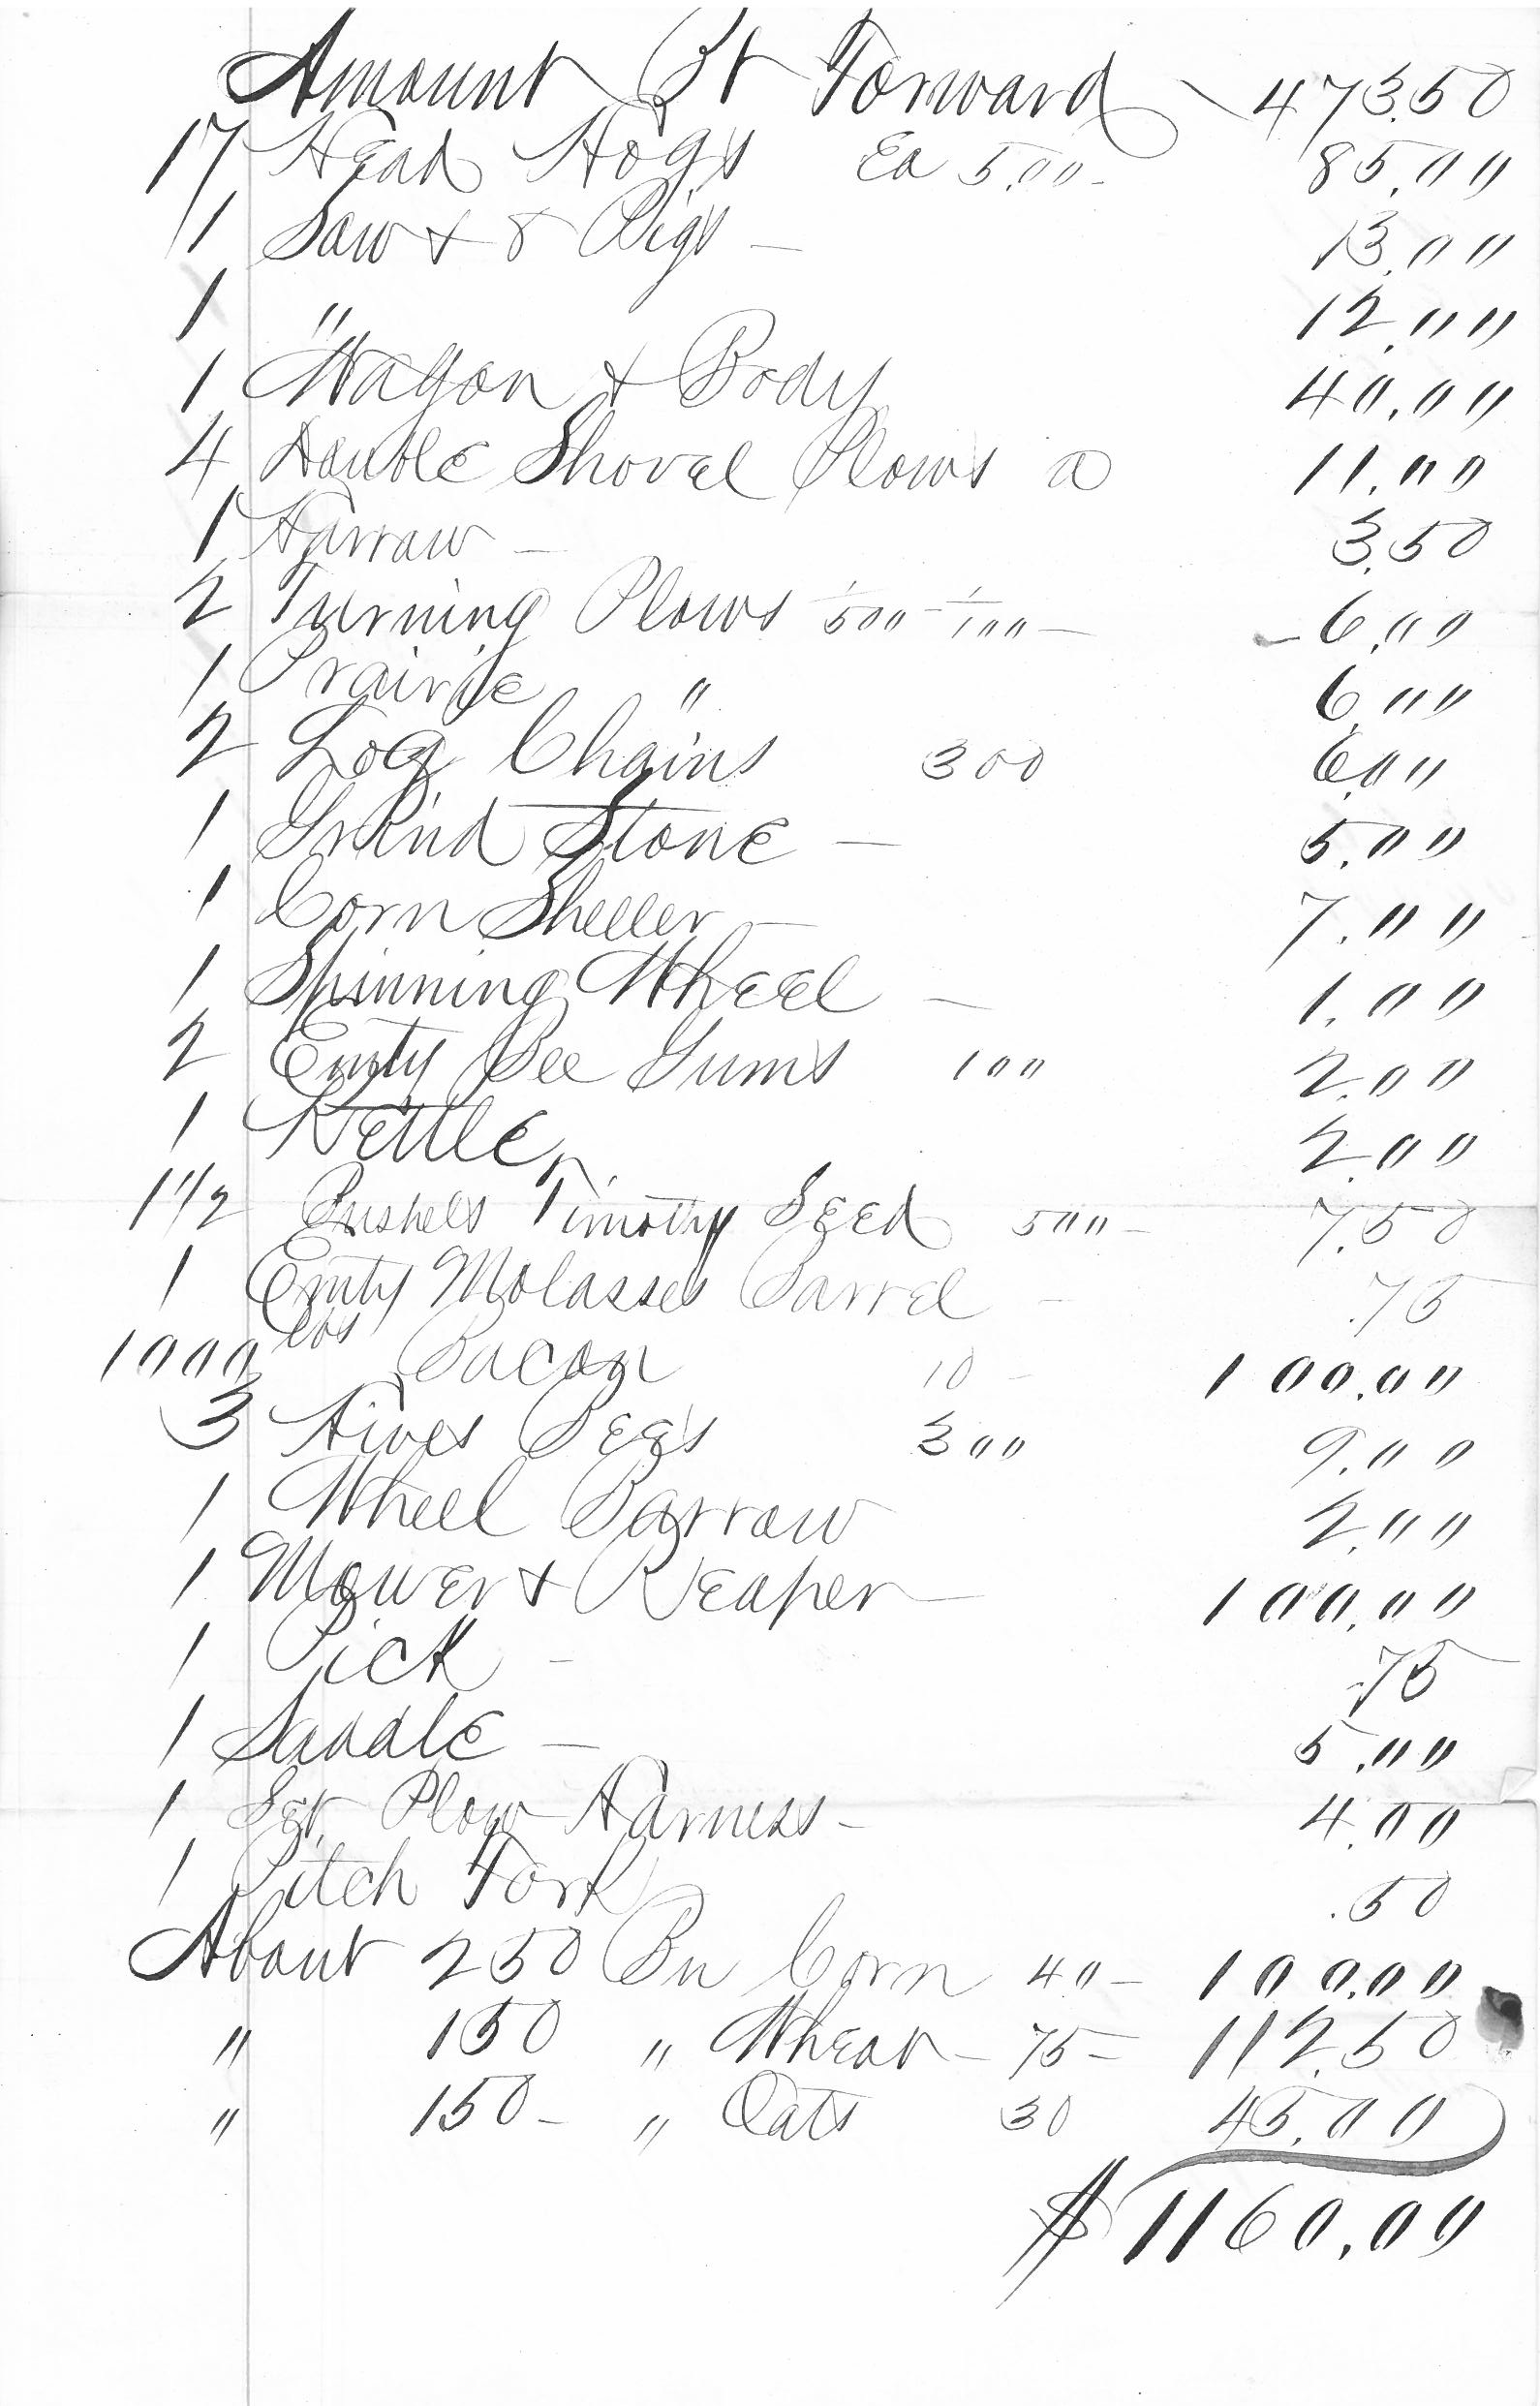 Amount Bt Forward 473.50
17 Head Hogs Ea 5.00 - 85.00
1 Sow & 8 Pigs - 13.00
1 " 12.00
1 Wagon & Body 40.00
4 Double Shovel Plows @ 11.00
1 Harrow - 3.50
2 Turning Plows 1/500 - 1/100 - 6.00
1 Prairie " 6.00
2 Log Chains 300 6.00
1 Grind Stone - 5.00
1 Corn Sheller - 7.00
1 Spinning Wheel - 1.00
2 Emty Bee Gums 100 2.00
1 Kettle 2.00
1 1/2 Bushels Timothy Seed 500 - 7.50
1 Emty Molasses Barrel - .75
1000 lbs Bacon 10 - 100.00
3 Hives Bees 300 9.00
1 Wheel Barrow 2.00
1 Mower & Reaper - 100.00
1 Pick - .75
1 Saddle - 5.00
1 Set Plow Harness - 4.00
1 Pitch Fork .50
About 250 Bu Corn 40 - 100.00
" 150 " Wheat - 75 - 112.50
" 150 - " Oats 30 45.00
$1160.00